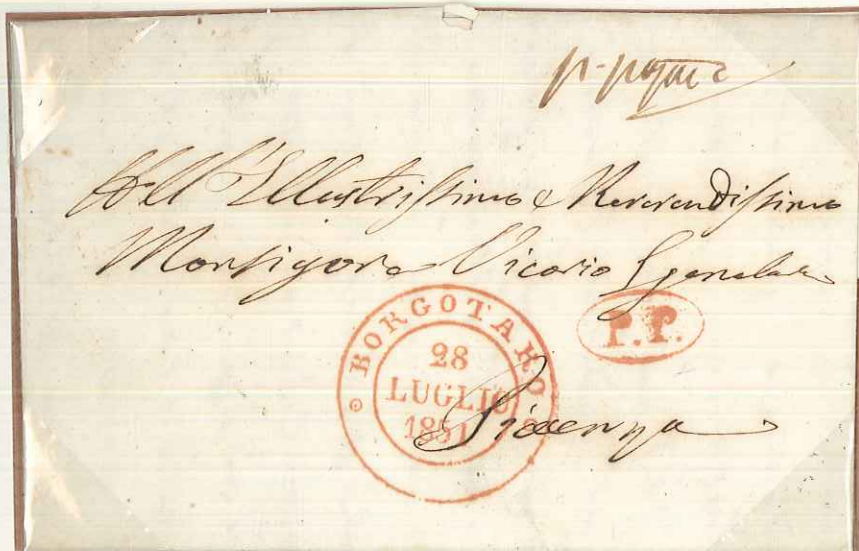 All'Illustrissimo e Reverendissimo
Monsignore Vicario Generale
P.P.
BORGOTARO
28
LUGLIO
1851
Piacenza